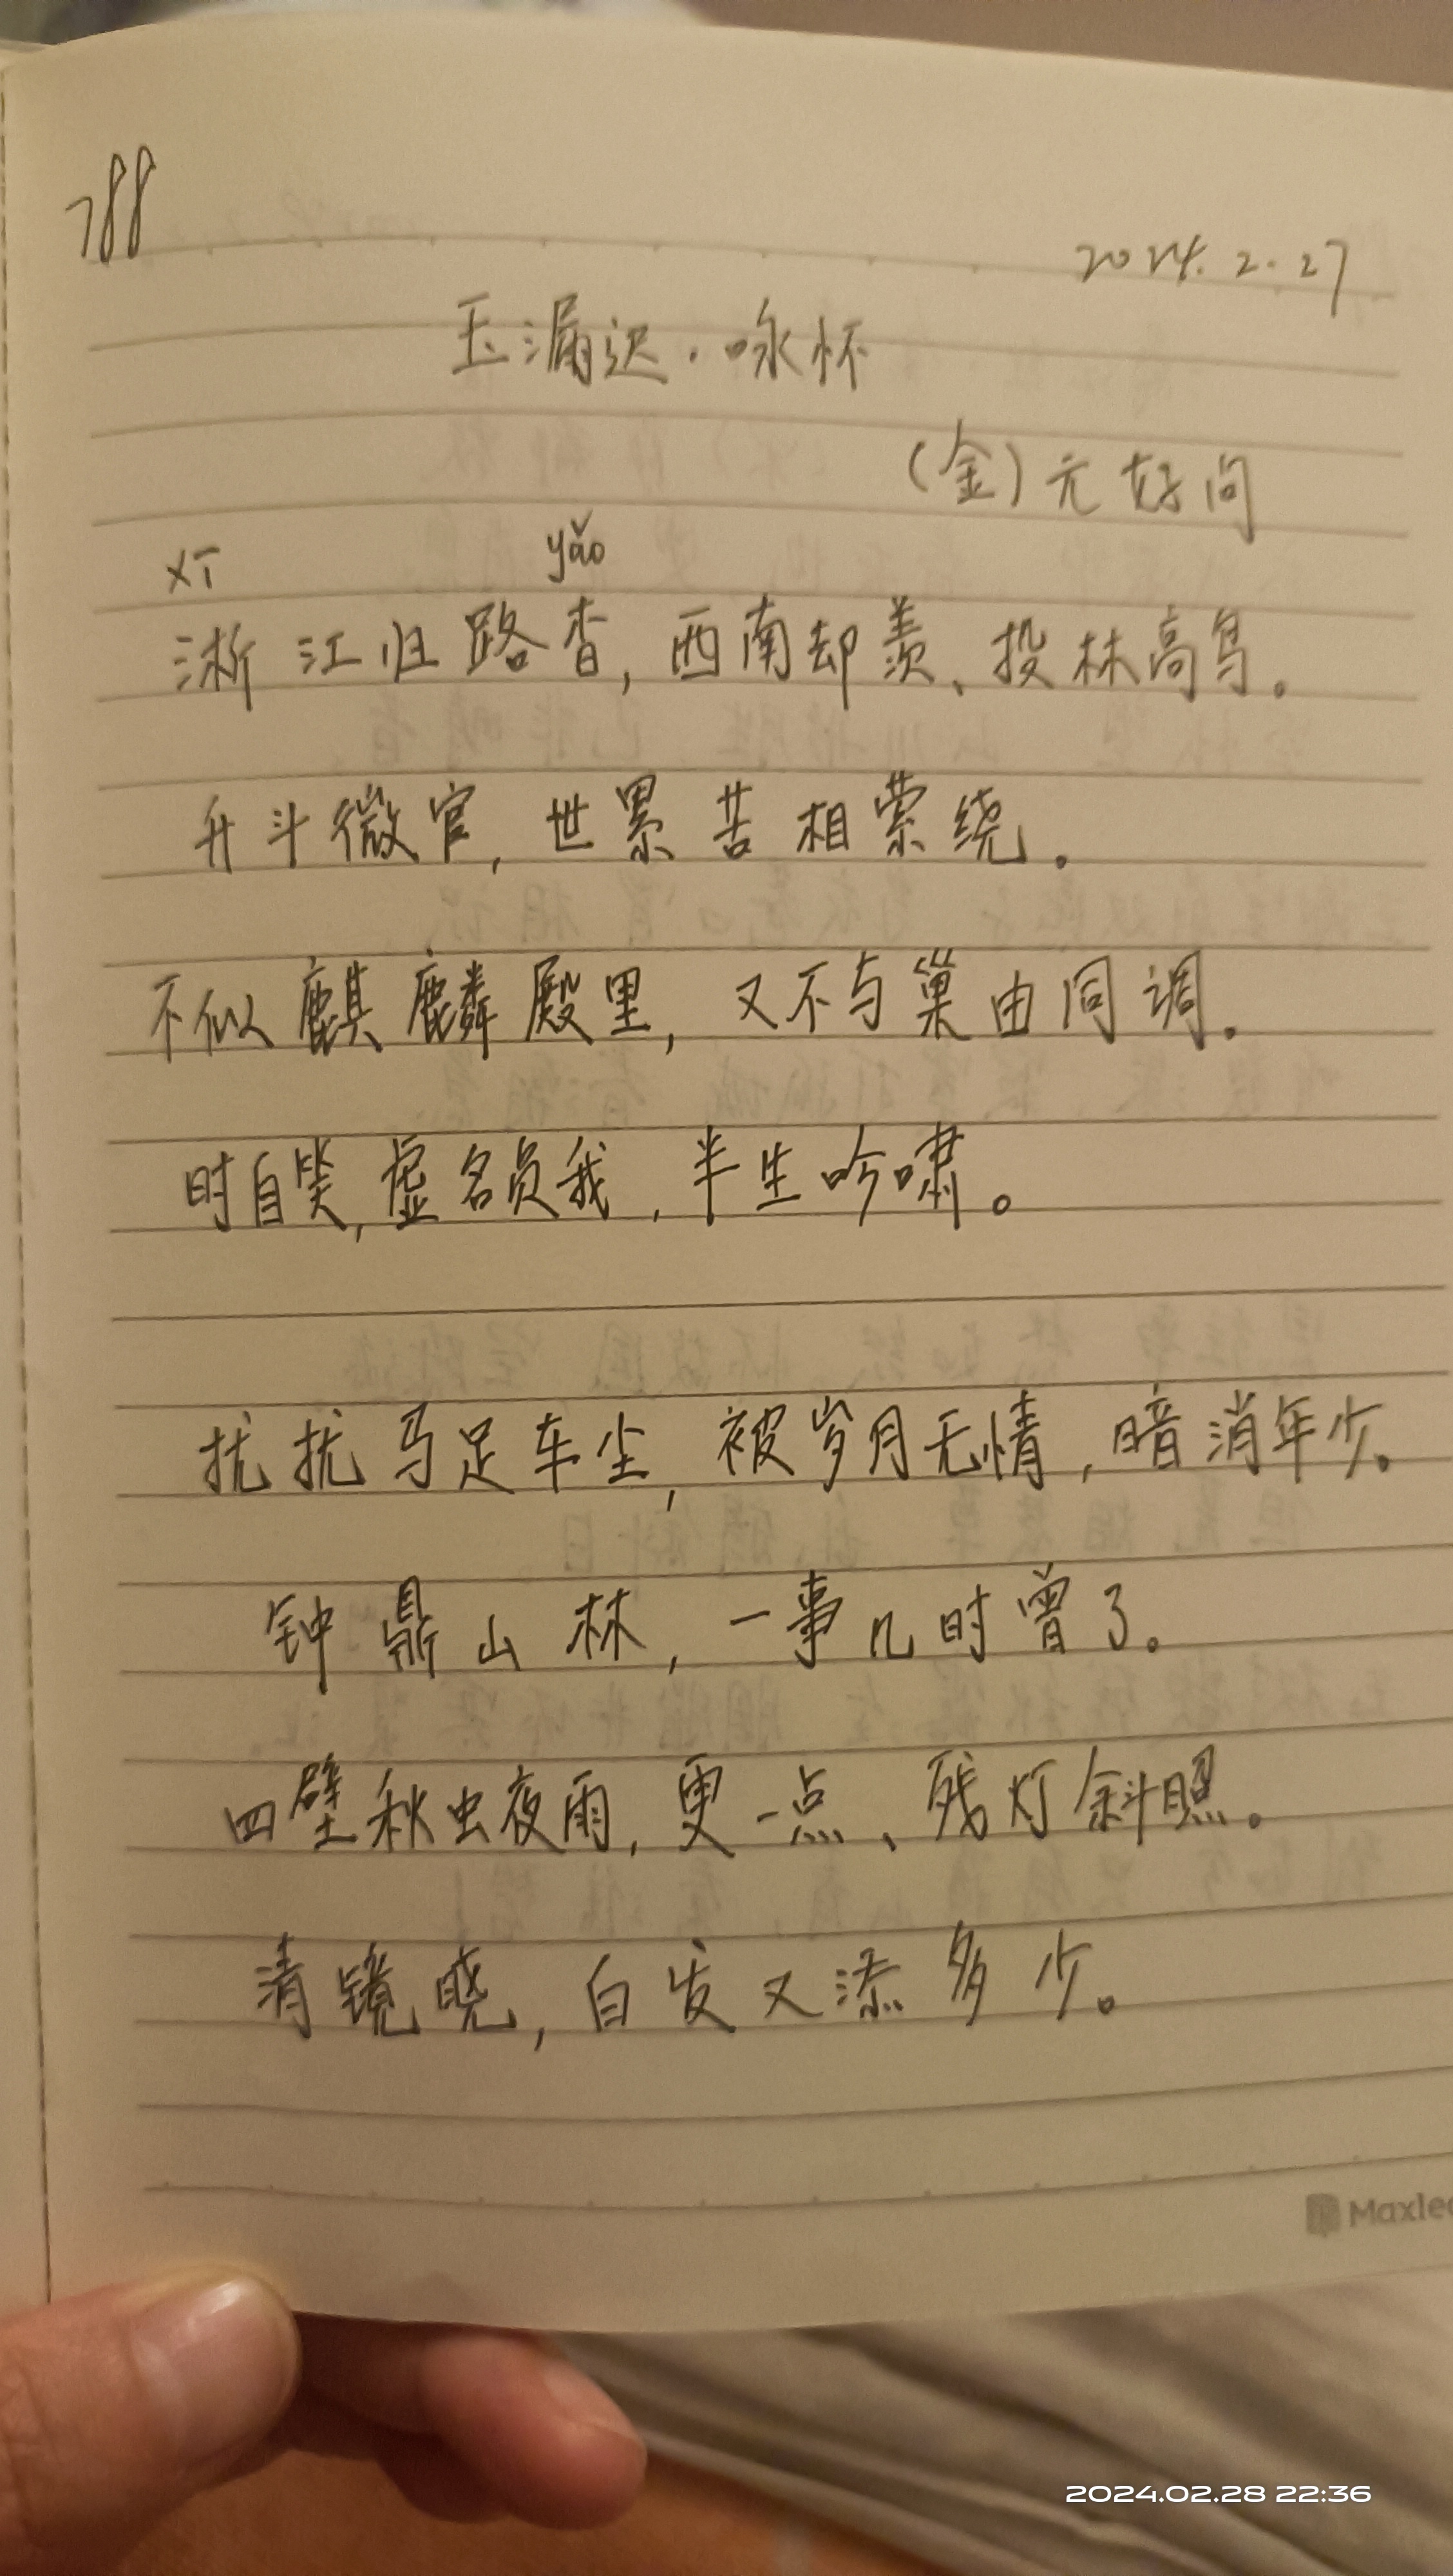 788
2024.2.27
玉漏迟·咏怀
(金)元好问
xī yǎo
淅江归路杳,西南却羡、投林高鸟。
升斗微官,世累苦相萦绕。
不似麒麟殿里,又不与巢由同调。
时自笑,虚名负我,半生吟啸。
扰扰马足车尘,被岁月无情,暗消年少。
钟鼎山林,一事几时曾了。
四壁秋虫夜雨,更一点、残灯斜照。
清镜晓,白发又添多少。
2024.02.28 22:36